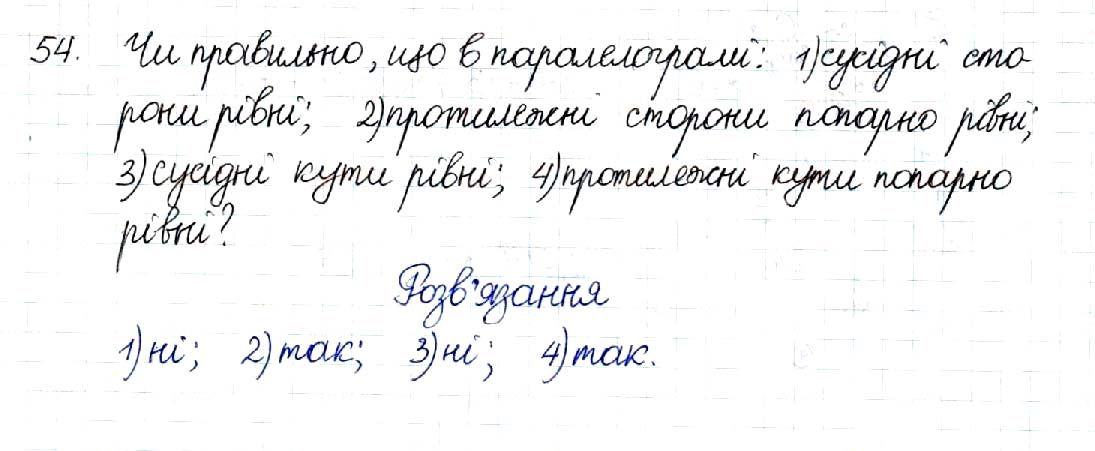 54. Чи правильно, що в паралелограмі: 1) сусідні сто-
рони рівні; 2) протилежні сторони попарно рівні;
3) сусідні кути рівні; 4) протилежні кути попарно
рівні?
Розв'язання
1) ні; 2) так; 3) ні; 4) так.